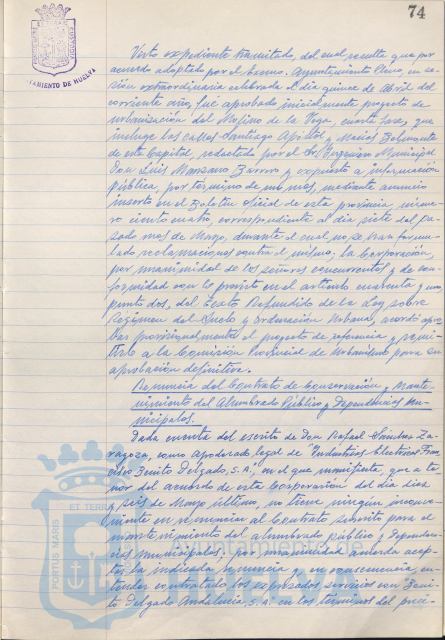 74
AYUNTAMIENTO DE HUELVA
Visto expediente tramitado, del cual resulta que por
acuerdo adoptado por el Excmo. Ayuntamiento Pleno, en se-
sión extraordinaria celebrada el día quince de Abril del
corriente año, fue aprobado inicialmente proyecto de
urbanización del Molino de la Vega, cuarta fase, que
incluye las calles Santiago Apóstol y Matías Belmonte
de esta Capital, redactado por el Sr. Ingeniero Municipal
Don Luis Manzano Barrero y expuesto a información
pública, por término de un mes, mediante anuncio
inserto en el Boletín Oficial de esta provincia núme-
ro ciento cuatro correspondiente al día siete del pa-
sado mes de Mayo, durante el cual no se han formu-
lado reclamaciones contra el mismo, la Corporación,
por unanimidad de los señores concurrentes y de con-
formidad con lo previsto en el artículo cuarenta y uno
punto dos, del Texto Refundido de la Ley sobre
Régimen del Suelo y Ordenación Urbana, acordó apro-
bar provisionalmente el proyecto de referencia y remi-
tirlo a la Comisión Provincial de Urbanismo para su
aprobación definitiva.
Renuncia del Contrato de Conservación y Mante-
nimiento del Alumbrado Público y Dependencias Mu-
nicipales.
Dada cuenta del escrito de Don Rafael Sánchez Za-
ragoza, como apoderado legal de "Industrias Eléctricas Fran-
cisco Benito Delgado, S.A.", en el que manifiesta, que a te-
nor del acuerdo de esta Corporación del día diez
y seis de Marzo último, no tiene ningún inconve-
niente en renunciar al Contrato suscrito para el
mantenimiento del alumbrado público y Dependen-
cias Municipales, por unanimidad acuerda acep-
tar la indicada renuncia y en consecuencia, en-
tender contratado los expresados servicios con Beni-
to Delgado Andalucía, S.A. en los términos del
PORTUS MARIS ET TERRAE
Ayuntamiento de
HUELVA